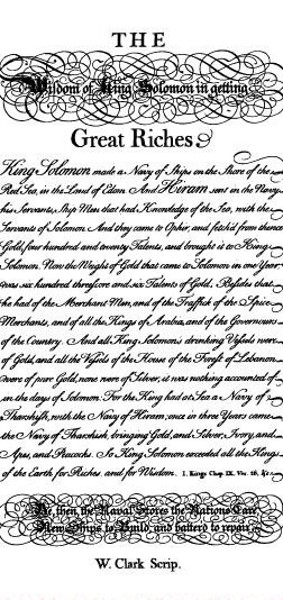 THE
Wisdom of King Solomon in getting
Great Riches
King Solomon made a Navy of Ships on the Shore of the
Red Sea, in the Land of Edom. And Hiram sent in the Navy
his Servants, Ship Men that had Knowledge of the Sea, with the
Servants of Solomon. And they came to Ophir, and fetch'd from thence
Gold, four hundred and twenty Talents, and brought it to King
Solomon. Now the Weight of Gold that came to Solomon in one Year,
was six hundred threescore and six Talents of Gold, Besides that
he had of the Merchant Men, and of the Traffick of the Spice
Merchants, and of all the Kings of Arabia, and of the Governours
of the Country. And all King Solomon's drinking Vessels were
of Gold, and all the Vessels of the House of the Forest of Lebanon
were of pure Gold, none were of Silver, it was nothing accounted of
in the days of Solomon. For the King had at Sea a Navy of
Tharshish, with the Navy of Hiram; once in three Years came
the Navy of Tharshish, bringing Gold, and Silver, Ivory, and
Apes, and Peacocks. So King Solomon exceeded all the Kings
of the Earth for Riches, and for Wisdom. I. Kings Chap. IX. Ver. 26, &c.
Be, then, the Naval Stores the Nations Care,
New Ships to Build, and batter'd to repair.
W. Clark Scrip.